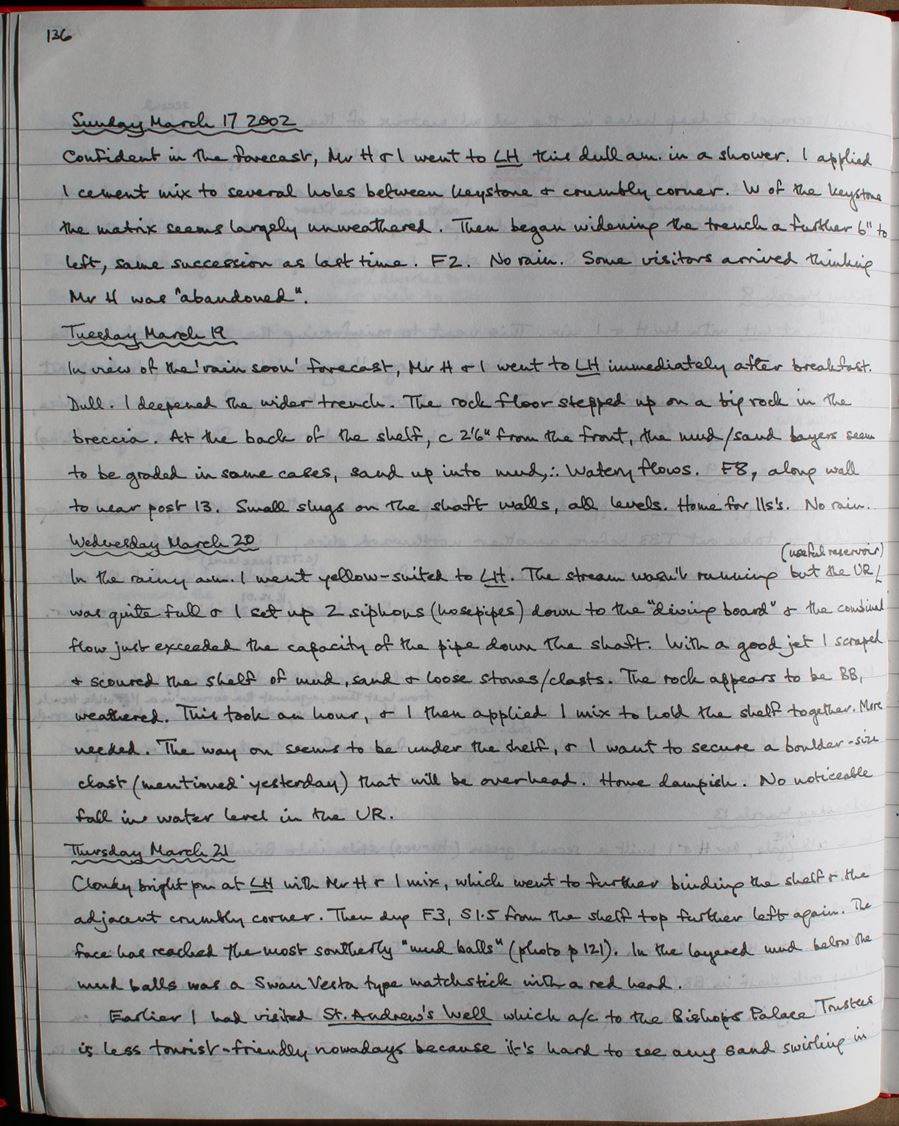 136
Sunday March 17 2002
Confident in the forecast, Mr H & I went to LH this dull am. in a shower. I applied
1 cement mix to several holes between keystone & crumbly corner. W of the keystone
the matrix seems largely unweathered. Then began widening the trench a further 6" to
left, same succession as last time. F2. No rain. Some visitors arrived thinking
Mr H was "abandoned".
Tuesday March 19
In view of the 'rain soon' forecast, Mr H & I went to LH immediately after breakfast.
Dull. I deepened the wider trench. The rock floor stepped up on a big rock in the
breccia. At the back of the shelf, c 2'6" from the front, the mud/sand layers seem
to be graded in some cases, sand up into mud, ∴ Watery flows. F8, along wall
to near post 13. Small slugs on the shaft walls, all levels. Home for 11s's. No rain.
Wednesday March 20
(useful reservoir)
In the rainy am. I went yellow-suited to LH. The stream wasn't running but the UR/
was quite full & I set up 2 siphons (hosepipes) down to the "diving board" & the combined
flow just exceeded the capacity of the pipe down the shaft. With a good jet I scraped
& scoured the shelf of mud, sand & loose stones/clasts. The rock appears to be BB,
weathered. This took an hour, & I then applied 1 mix to hold the shelf together. More
needed. The way on seems to be under the shelf, & I want to secure a boulder-size
clast (mentioned yesterday) that will be overhead. Home dampish. No noticeable
fall in water level in the UR.
Thursday March 21
Cloudy bright pm at LH with Mr H & 1 mix, which went to further binding the shelf & the
adjacent crumbly corner. Then dug F3, S1.5 from the shelf top further left again. The
face has reached the most southerly "mud balls" (photo p 121). In the layered mud below the
mud balls was a Swan Vesta type matchstick with a red head.
Earlier I had visited St. Andrew's Well which a/c to the Bishops Palace Trustees
is less tourist-friendly nowadays because it's hard to see any sand swirling in